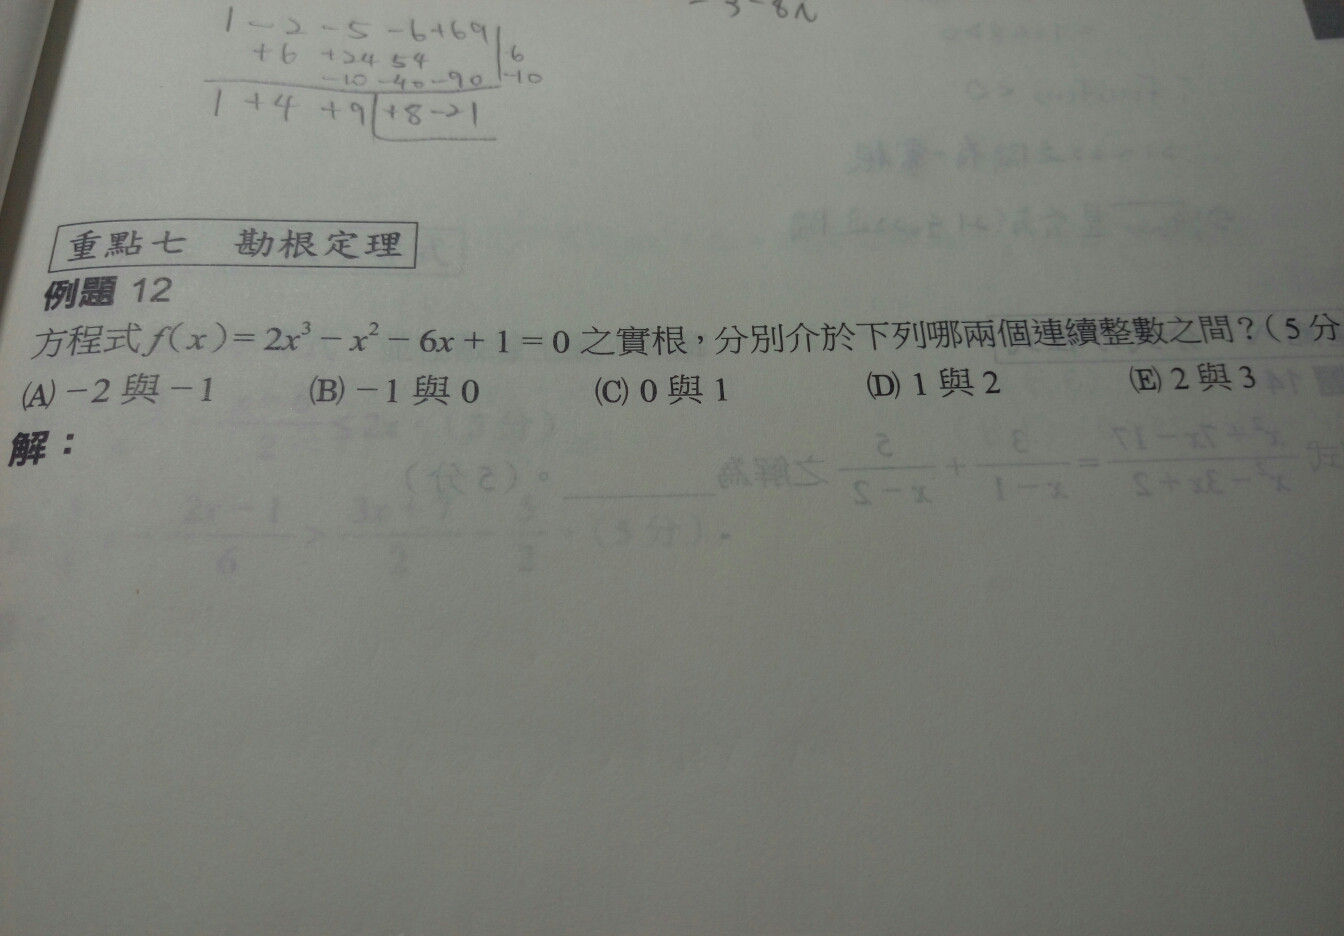 -3-8i
1 -2 -5 -6+69
+6 +24 54 6
-10 -40 -90 -10
1 +4 +9 +8 -21
重點七 勘根定理
例題 12
方程式 f(x) = 2x³ - x² - 6x + 1 = 0 之實根，分別介於下列哪兩個連續整數之間？(5 分
(A) -2 與 -1 (B) -1 與 0 (C) 0 與 1 (D) 1 與 2 (E) 2 與 3
解：